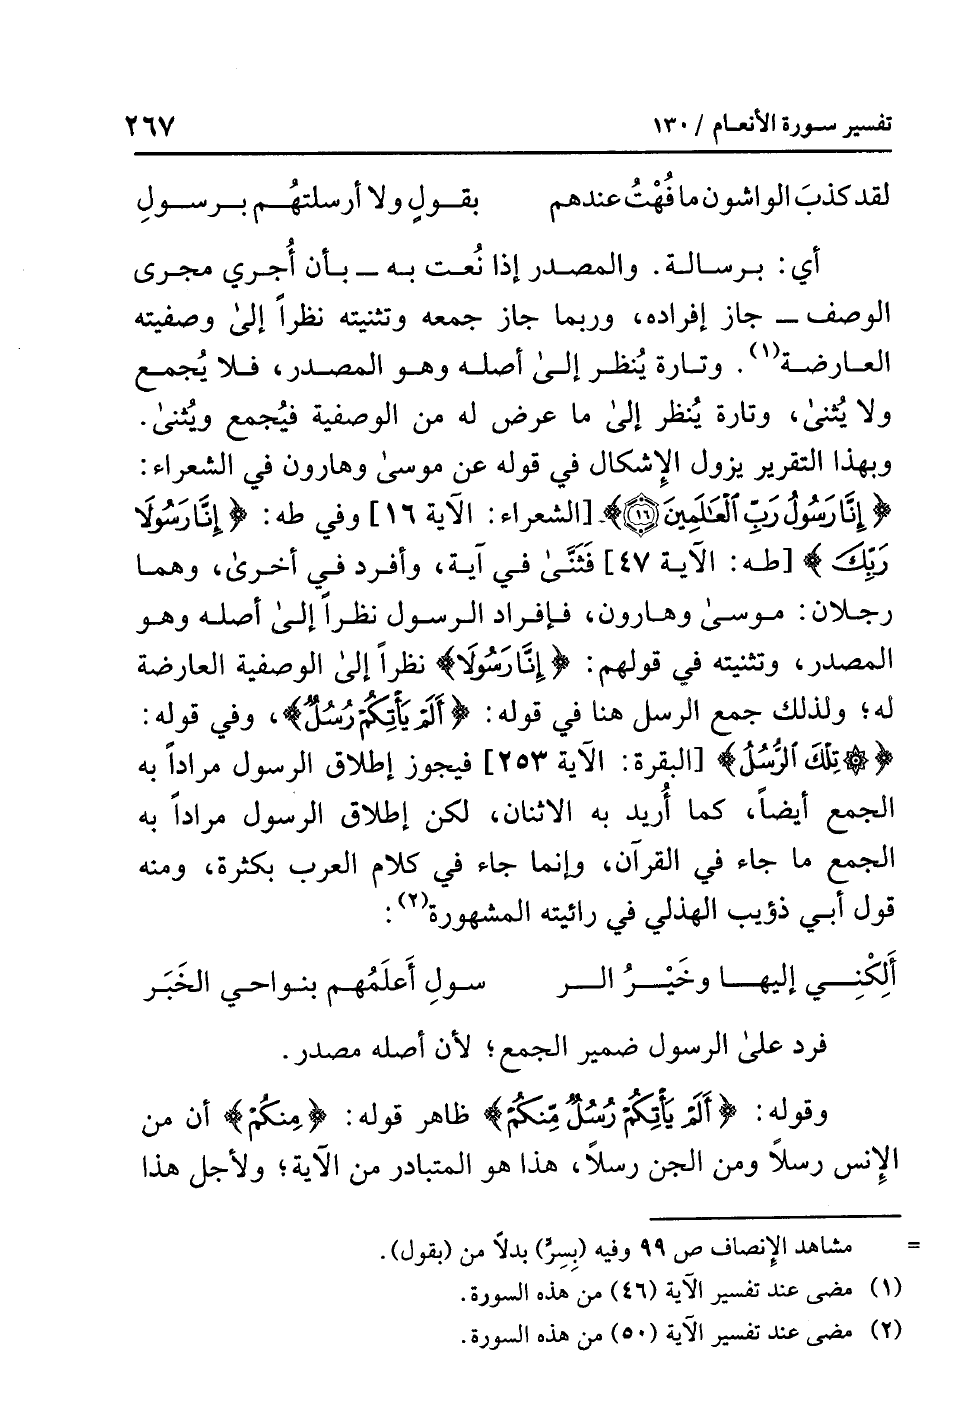 تفسير سورة الأنعام / ١٣٠ ٢٦٧
لقد كذبَ الواشون ما فُهْتُ عندهم بقولٍ ولا أرسلتهُم برسولِ
أي: برسالة. والمصدر إذا نُعت به ــ بأن أُجري مجرى
الوصف ــ جاز إفراده، وربما جاز جمعه وتثنيته نظراً إلىٰ وصفيته
العارضة(١). وتارة يُنظر إلىٰ أصله وهو المصدر، فلا يُجمع
ولا يُثنىٰ، وتارة يُنظر إلىٰ ما عرض له من الوصفية فيُجمع ويُثنىٰ.
وبهذا التقرير يزول الإشكال في قوله عن موسىٰ وهارون في الشعراء:
﴿إِنَّا رَسُولُ رَبِّ ٱلْعَـٰلَمِينَ ۝١٦﴾ [الشعراء: الآية ١٦] وفي طه: ﴿إِنَّا رَسُولَا
رَبِّكَ﴾ [طه: الآية ٤٧] فَثَنَّىٰ في آية، وأفرد في أخرىٰ، وهما
رجلان: موسىٰ وهارون، فإفراد الرسول نظراً إلىٰ أصله وهو
المصدر، وتثنيته في قولهم: ﴿إِنَّا رَسُولَا﴾ نظراً إلىٰ الوصفية العارضة
له؛ ولذلك جمع الرسل هنا في قوله: ﴿أَلَمْ يَأْتِكُمْ رُسُلٌ﴾، وفي قوله:
﴿۞ تِلْكَ ٱلرُّسُلُ﴾ [البقرة: الآية ٢٥٣] فيجوز إطلاق الرسول مراداً به
الجمع أيضاً، كما أُريد به الاثنان، لكن إطلاق الرسول مراداً به
الجمع ما جاء في القرآن، وإنما جاء في كلام العرب بكثرة، ومنه
قول أبي ذؤيب الهذلي في رائيته المشهورة(٢):
أَلِكْنِي إليها وخَيْرُ الر سولِ أَعلَمُهم بنواحي الخَبَر
فرد علىٰ الرسول ضمير الجمع؛ لأن أصله مصدر.
وقوله: ﴿أَلَمْ يَأْتِكُمْ رُسُلٌ مِّنكُمْ﴾ ظاهر قوله: ﴿مِنكُمْ﴾ أن من
الإنس رسلاً ومن الجن رسلاً، هذا هو المتبادر من الآية؛ ولأجل هذا
= مشاهد الإنصاف ص ٩٩ وفيه (بِسِرٍّ) بدلاً من (بقول).
(١) مضى عند تفسير الآية (٤٦) من هذه السورة.
(٢) مضى عند تفسير الآية (٥٠) من هذه السورة.